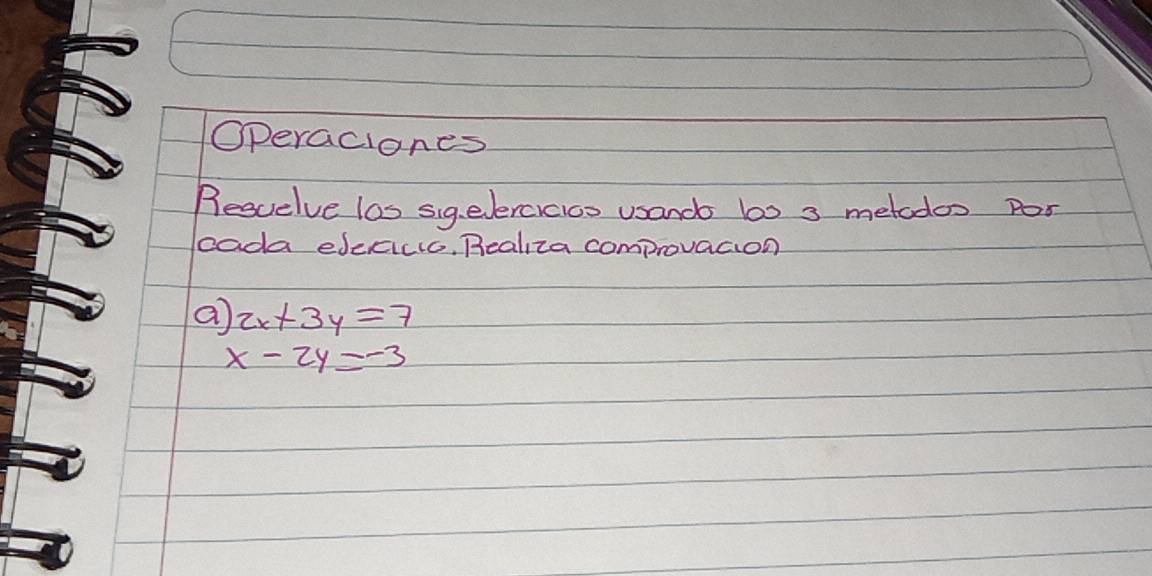 Operaciones
Resuelve los sig. ejercicios usando los 3 metodos Por
cada ejercicio. Realiza comprovacion
a) 2x + 3y = 7
x - 2y = -3